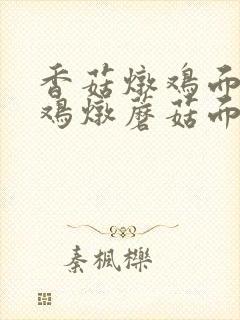 香菇燉鸡面
鸡燉蘑菇面
秦楓櫟